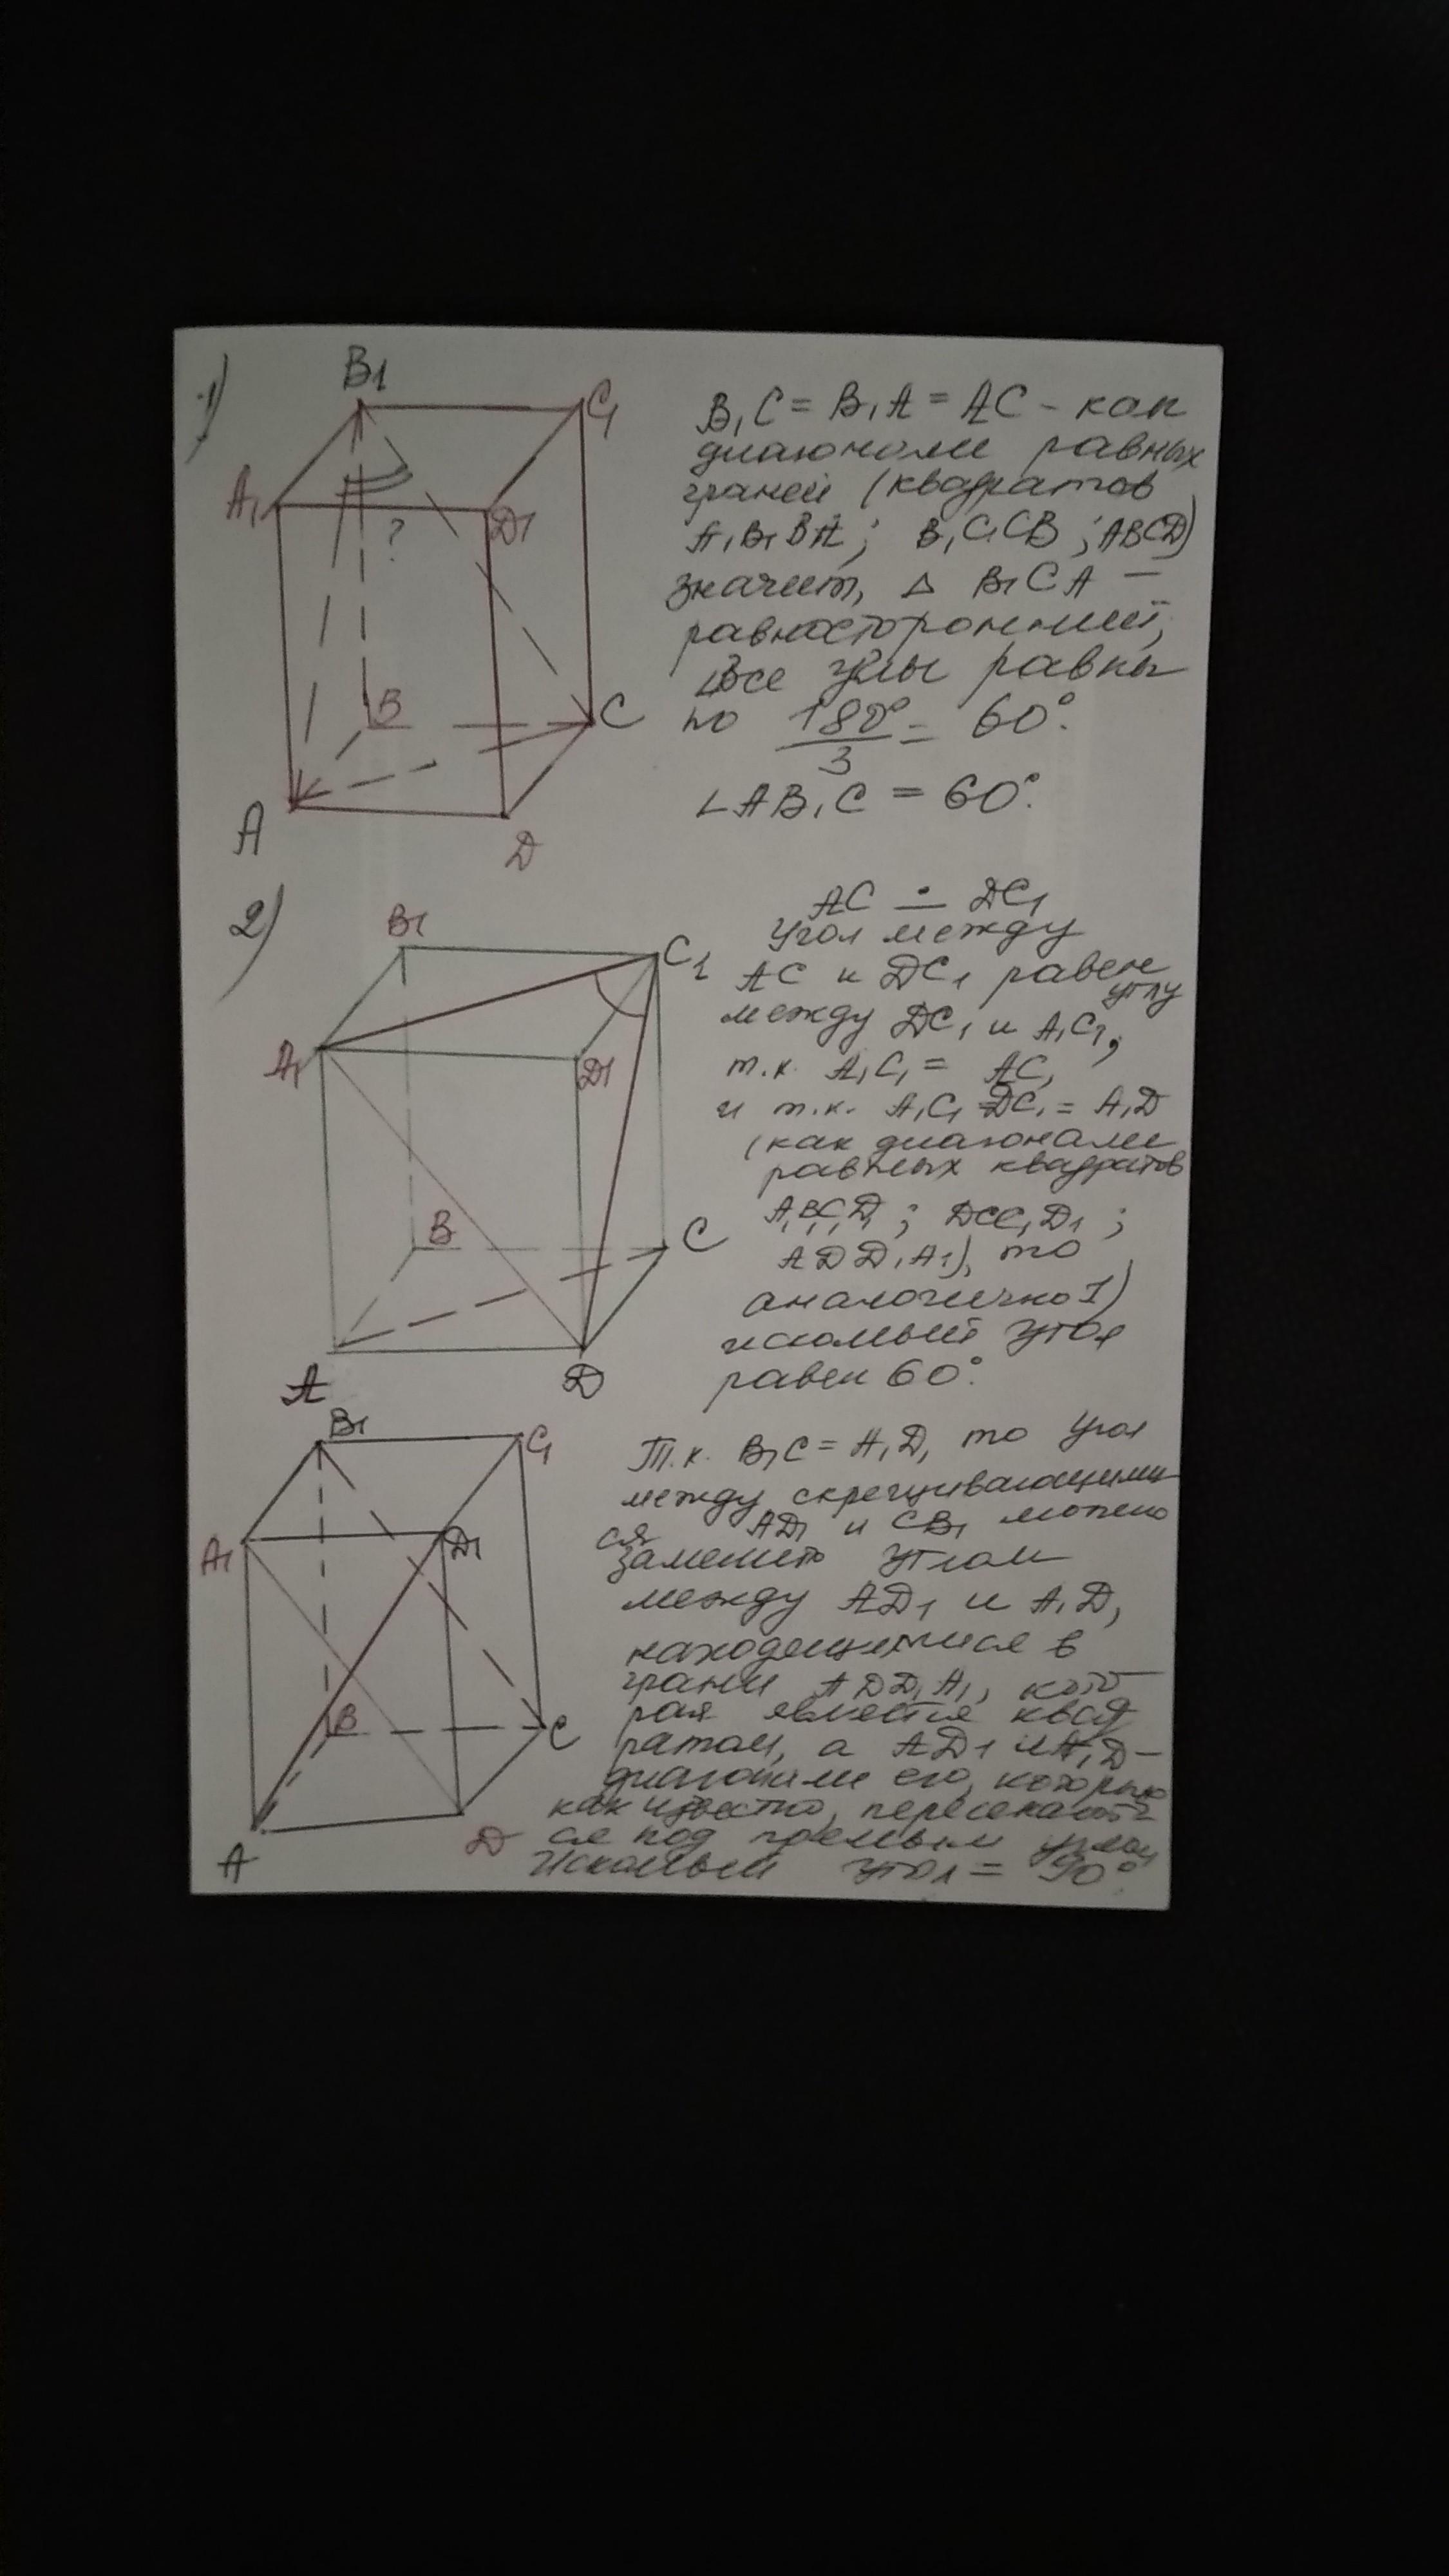 1)
B1
C1
A1
D1
?
B
C
A
D
B1C = B1A = AC - как
диагонали равных
граней (квадратов
A1B1BA; B1C1CB; ABCD)
значит, △ B1CA —
равносторонний,
все углы равны
по 180°/3 = 60°.
∠AB1C = 60°.
2)
B1
C1
A1
D1
B
C
A
D
AC ∸ DC1
Угол между
AC и DC1 равен
углу
между DC1 и A1C1,
т.к. A1C1 = AC,
и т.к. A1C1 = DC1 = A1D
(как диагонали
равных квадратов
A1B1C1D1; DCC1D1;
ADD1A1), то
аналогично 1)
искомый угол
равен 60°.
B1
C1
A1
D1
B
C
A
D
Т.к. B1C = A1D, то угол
между скрещивающими
ся AD1 и CB1 можно
заменить углом
между AD1 и A1D,
находящимися в
грани ADD1A1, кото
рая является квад
ратом, а AD1 и A1D —
диагонали его, которые
как известно, пересекают
ся под прямым углом
Искомый угол = 90°.